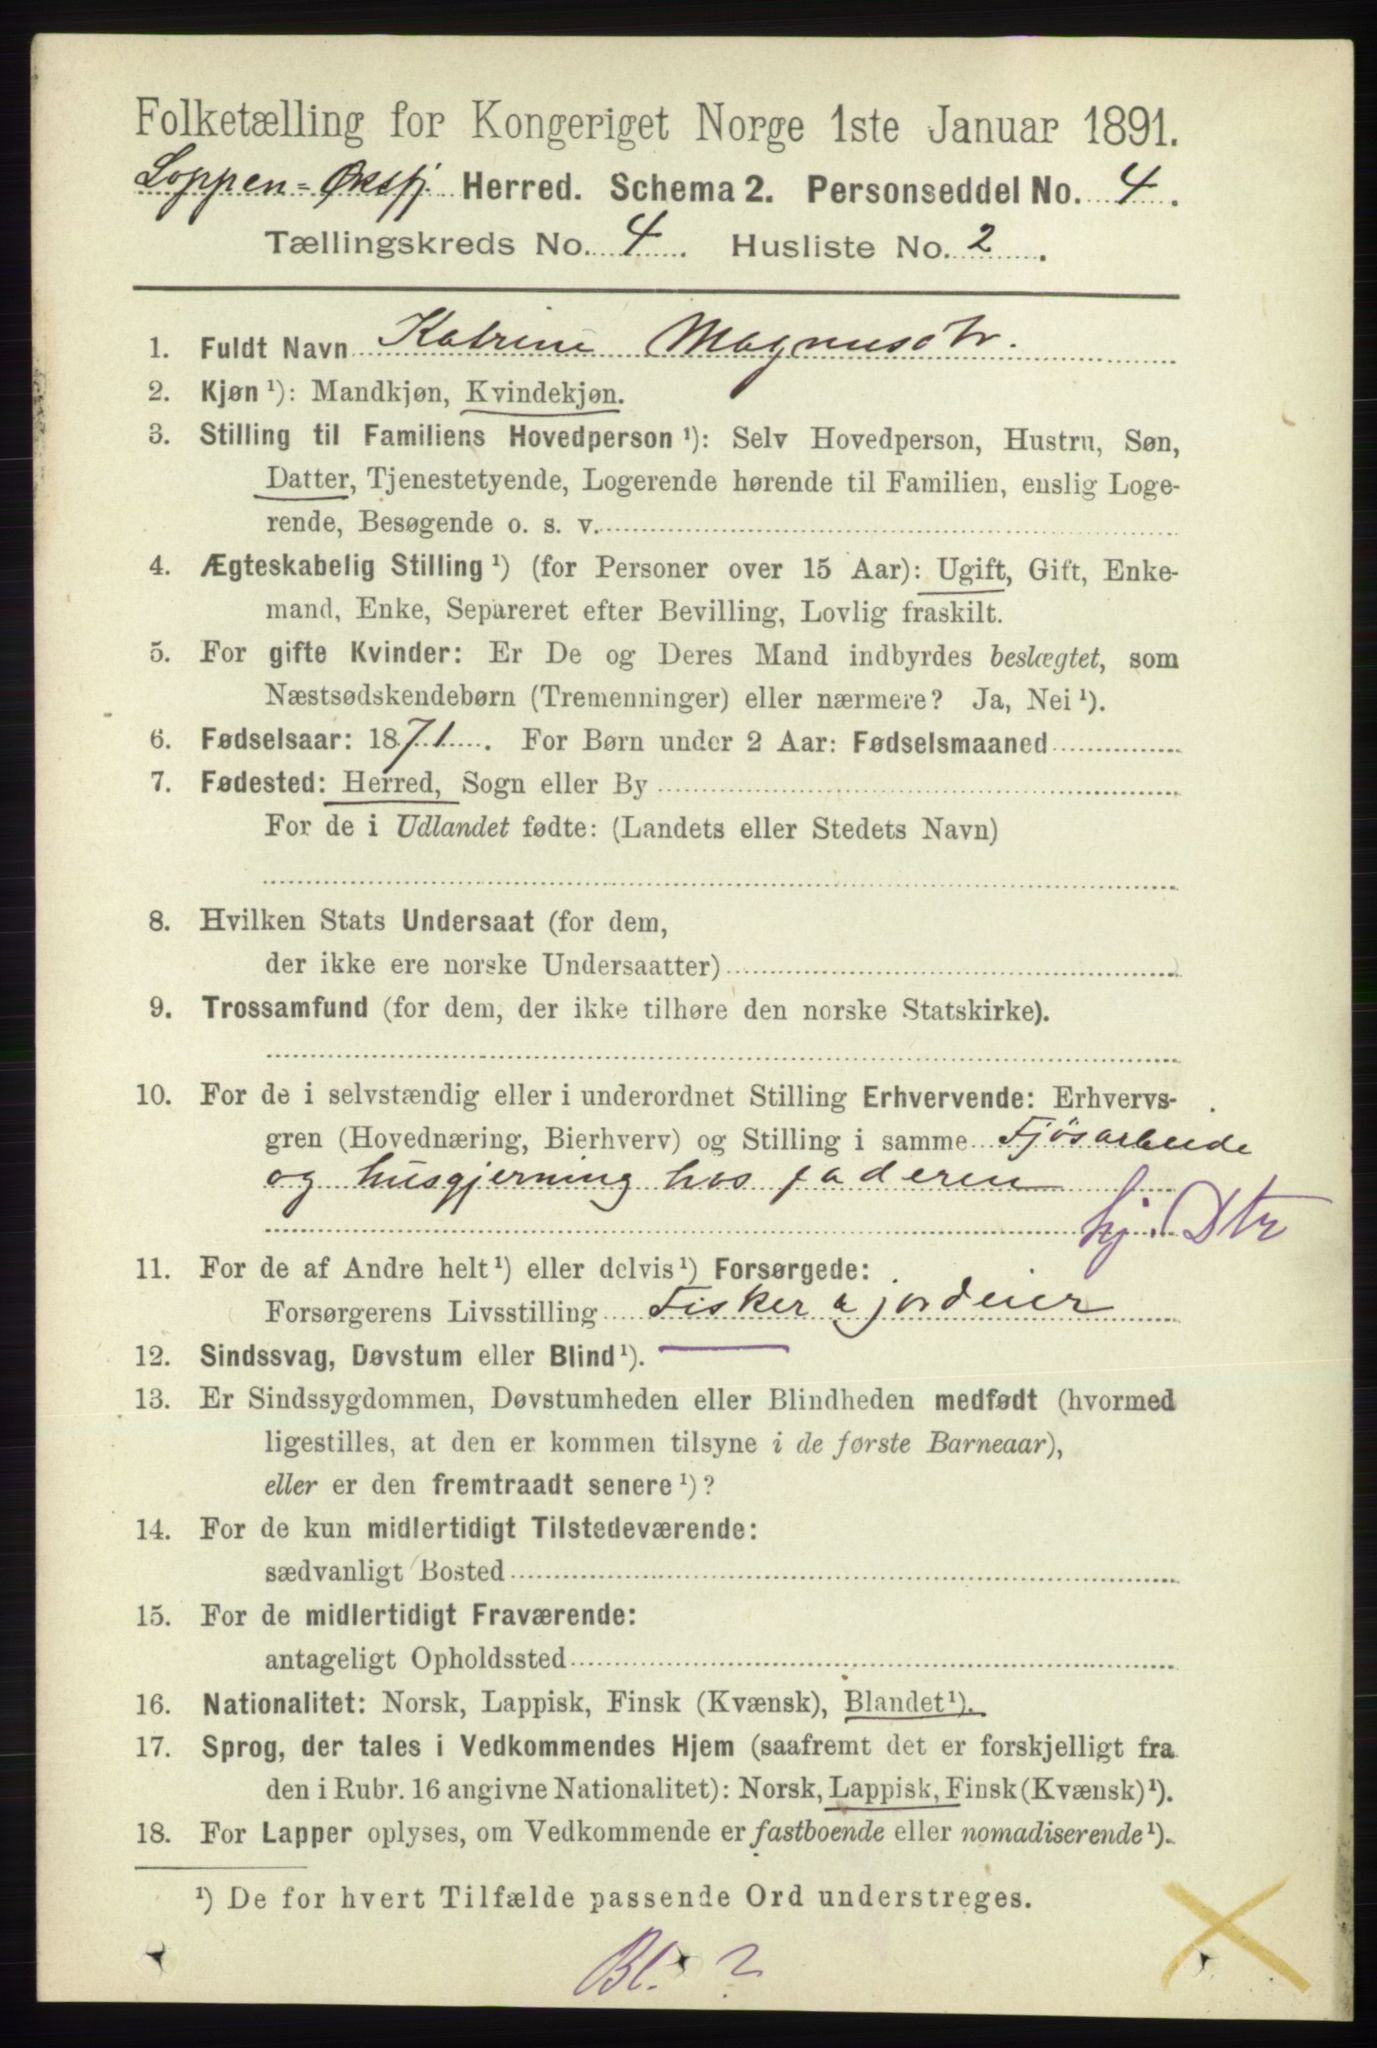 Folketælling for Kongeriget Norge 1ste Januar 1891.
Loppen-Øksfj. Herred. Schema 2. Personseddel No. 4.
Tællingskreds No. 4. Husliste No. 2.
1. Fuldt Navn Katrine Magnusdtr.
2. Kjøn ¹): Mandkjøn, Kvindekjøn.
3. Stilling til Familiens Hovedperson ¹): Selv Hovedperson, Hustru, Søn,
Datter, Tjenestetyende, Logerende hørende til Familien, enslig Loge-
rende, Besøgende o. s. v.
4. Ægteskabelig Stilling ¹) (for Personer over 15 Aar): Ugift, Gift, Enke-
mand, Enke, Separeret efter Bevilling, Lovlig fraskilt.
5. For gifte Kvinder: Er De og Deres Mand indbyrdes beslægtet, som
Næstsødskendebørn (Tremenninger) eller nærmere? Ja, Nei ¹).
6. Fødselsaar: 1871. For Børn under 2 Aar: Fødselsmaaned
7. Fødested: Herred, Sogn eller By
For de i Udlandet fødte: (Landets eller Stedets Navn)
8. Hvilken Stats Undersaat (for dem,
der ikke ere norske Undersaatter)
9. Trossamfund (for dem, der ikke tilhøre den norske Statskirke).
10. For de i selvstændig eller i underordnet Stilling Erhvervende: Erhvervs-
gren (Hovednæring, Bierhverv) og Stilling i samme Fjøsarbeide
og husgjerning hos faderen
hj. Dtr
11. For de af Andre helt ¹) eller delvis ¹) Forsørgede:
Forsørgerens Livsstilling Fisker & jordeier
12. Sindssvag, Døvstum eller Blind ¹).
13. Er Sindssygdommen, Døvstumheden eller Blindheden medfødt (hvormed
ligestilles, at den er kommen tilsyne i de første Barneaar),
eller er den fremtraadt senere ¹)?
14. For de kun midlertidigt Tilstedeværende:
sædvanligt Bosted
15. For de midlertidigt Fraværende:
antageligt Opholdssted
16. Nationalitet: Norsk, Lappisk, Finsk (Kvænsk), Blandet ¹).
17. Sprog, der tales i Vedkommendes Hjem (saafremt det er forskjelligt fra
den i Rubr. 16 angivne Nationalitet): Norsk, Lappisk, Finsk (Kvænsk) ¹).
18. For Lapper oplyses, om Vedkommende er fastboende eller nomadiserende ¹).
¹) De for hvert Tilfælde passende Ord understreges.
Bl. ?